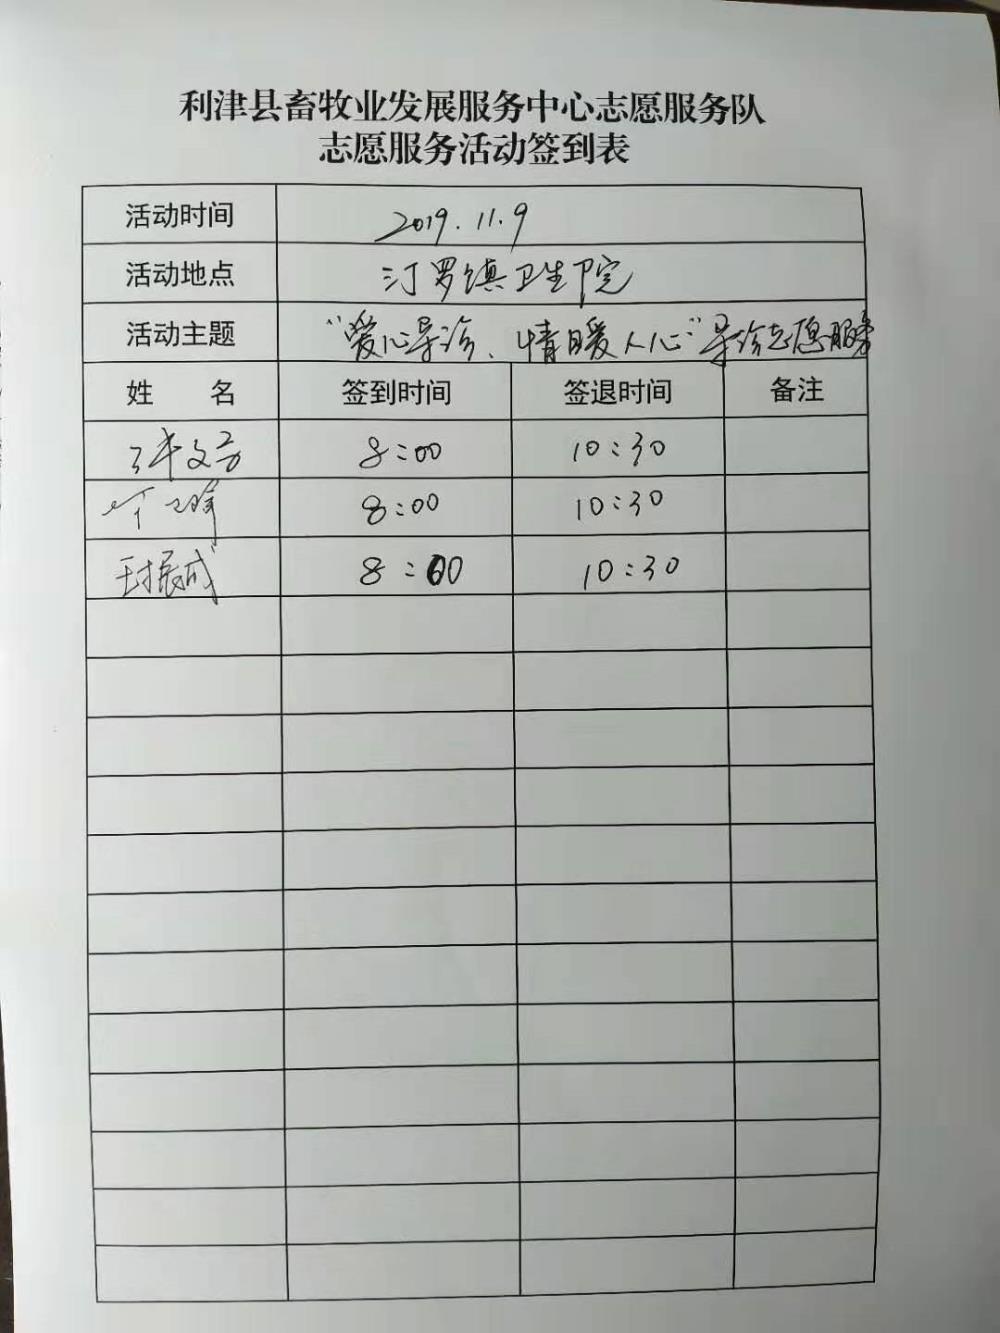 利津县畜牧业发展服务中心志愿服务队
志愿服务活动签到表
活动时间 2019.11.9
活动地点 汀罗镇卫生院
活动主题 “爱心导诊、情暖人心”导诊志愿服务
姓 名 签到时间 签退时间 备注
张文芳 8:00 10:30
8:00 10:30
王振成 8:00 10:30